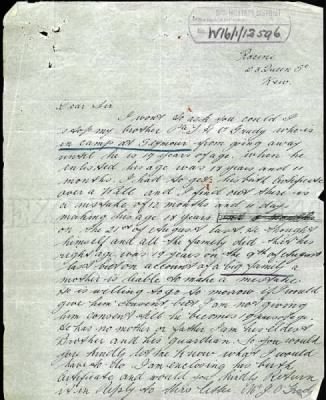 3RD MILITARY DISTRICT
W16/1/12596
Racine
28 Queen St
Kew
Dear Sir
I want to ask you could I
stop my brother Pte J H O'Grady who is
in camp at Seymour from going away
until he is 19 years of age. When he
enlisted his age was 19 years and
months. I had to get his birth certificate
over a Will and I find out there is
a mistake of 12 months and 11 days
making his age 18 years
on the 21st of August last. He thought
himself and all the family did that his
right age was 19 years on the 9th of August
last but on account of a big family a
mother is liable to make a mistake.
He is willing to go to morrow if I would
give him consent but I am not giving
him consent till he becomes 19 years of age
He has no mother or father I am his eldest
Brother and his guardian. So you would
you kindly let me know what I would
have to do I am enclosing his birth
Certificate and would you kindly Return
it in reply to this letter